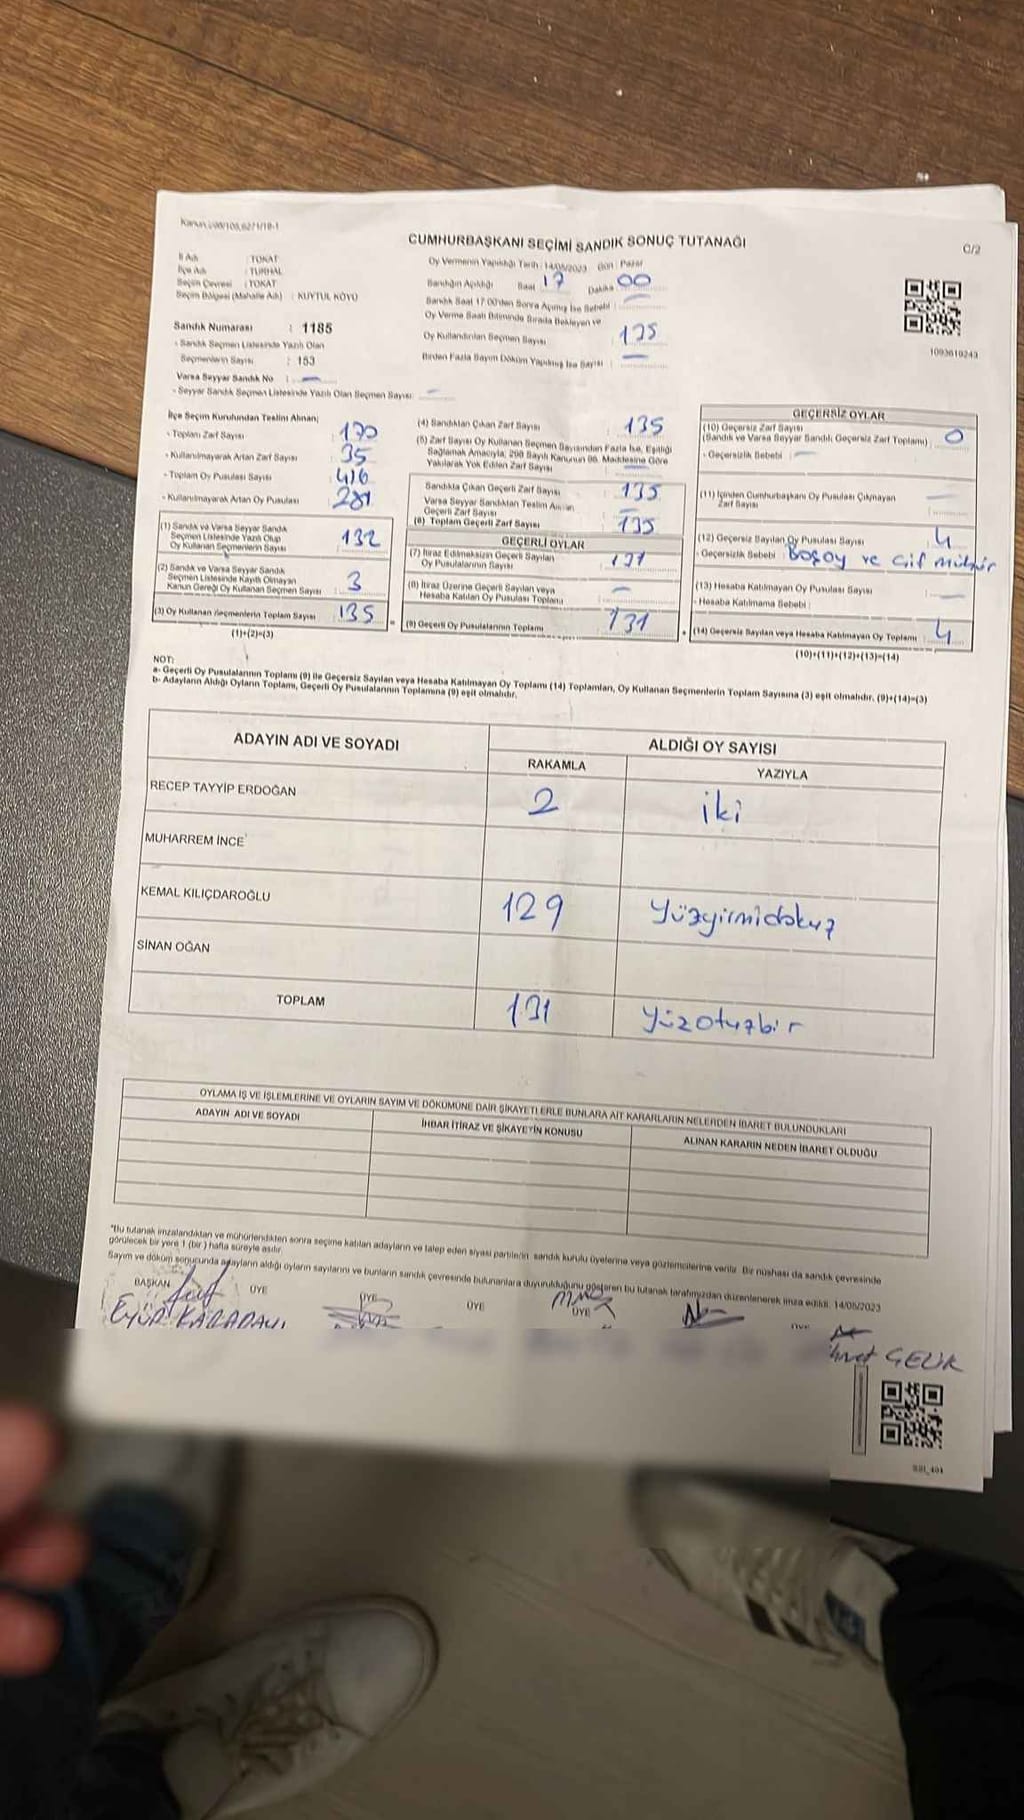 CUMHURBAŞKANI SEÇİMİ SANDIK SONUÇ TUTANAĞI
C/2
İl Adı : TOKAT
İlçe Adı : TURHAL
Seçim Çevresi : TOKAT
Seçim Bölgesi (Mahalle Adı) : KUYTUL KÖYÜ
Sandık Numarası : 1185
- Sandık Seçmen Listesinde Yazılı Olan
Seçmenlerin Sayısı : 153
Varsa Seyyar Sandık No : —
- Seyyar Sandık Seçmen Listesinde Yazılı Olan Seçmen Sayısı: —
Oy Vermenin Yapıldığı Tarih : 14/05/2023 Gün : Pazar
Sandığın Açıldığı Saat 17 Dakika 00
Sandık Saat 17:00'den Sonra Açılmış İse Sebebi : —
Oy Verme Saati Bitiminde Sırada Bekleyen ve
Oy Kullandırılan Seçmen Sayısı : 135
Birden Fazla Sayım Döküm Yapılmış İse Sayısı : —
1093619243
İlçe Seçim Kurulundan Teslim Alınan;
- Toplam Zarf Sayısı : 170
- Kullanılmayarak Artan Zarf Sayısı : 35
- Toplam Oy Pusulası Sayısı : 416
- Kullanılmayarak Artan Oy Pusulası : 281
(1) Sandık ve Varsa Seyyar Sandık
Seçmen Listesinde Yazılı Olup
Oy Kullanan Seçmenlerin Sayısı : 132
(2) Sandık ve Varsa Seyyar Sandık
Seçmen Listesinde Kayıtlı Olmayan
Kanun Gereği Oy Kullanan Seçmen Sayısı : 3
(3) Oy Kullanan Seçmenlerin Toplam Sayısı : 135
(1)+(2)=(3)
(4) Sandıktan Çıkan Zarf Sayısı : 135
(5) Zarf Sayısı Oy Kullanan Seçmen Sayısından Fazla İse, Eşitliği
Sağlamak Amacıyla, 298 Sayılı Kanunun 98. Maddesine Göre
Yakılarak Yok Edilen Zarf Sayısı : —
Sandıkta Çıkan Geçerli Zarf Sayısı : 135
Varsa Seyyar Sandıktan Teslim Alınan
Geçerli Zarf Sayısı : —
(6) Toplam Geçerli Zarf Sayısı : 135
GEÇERLİ OYLAR
(7) İtiraz Edilmeksizin Geçerli Sayılan
Oy Pusulalarının Sayısı : 131
(8) İtiraz Üzerine Geçerli Sayılan veya
Hesaba Katılan Oy Pusulası Toplamı : —
(9) Geçerli Oy Pusulalarının Toplamı : 131
GEÇERSİZ OYLAR
(10) Geçersiz Zarf Sayısı
(Sandık ve Varsa Seyyar Sandık Geçersiz Zarf Toplamı) : 0
- Geçersizlik Sebebi : —
(11) İçinden Cumhurbaşkanı Oy Pusulası Çıkmayan
Zarf Sayısı : —
(12) Geçersiz Sayılan Oy Pusulası Sayısı : 4
- Geçersizlik Sebebi : Boşoy ve Çif mühür
(13) Hesaba Katılmayan Oy Pusulası Sayısı : —
- Hesaba Katılmama Sebebi :
(14) Geçersiz Sayılan veya Hesaba Katılmayan Oy Toplamı : 4
(10)+(11)+(12)+(13)=(14)
NOT:
a- Geçerli Oy Pusulalarının Toplamı (9) ile Geçersiz Sayılan veya Hesaba Katılmayan Oy Toplamı (14) Toplamları, Oy Kullanan Seçmenlerin Toplam Sayısına (3) eşit olmalıdır. (9)+(14)=(3)
b- Adayların Aldığı Oyların Toplamı, Geçerli Oy Pusulalarının Toplamına (9) eşit olmalıdır.
ADAYIN ADI VE SOYADI
ALDIĞI OY SAYISI
RAKAMLA YAZIYLA
RECEP TAYYİP ERDOĞAN 2 iki
MUHARREM İNCE
KEMAL KILIÇDAROĞLU 129 yüzyirmidokuz
SİNAN OĞAN
TOPLAM 131 yüzotuzbir
OYLAMA İŞ VE İŞLEMLERİNE VE OYLARIN SAYIM VE DÖKÜMÜNE DAİR ŞİKAYETLERLE BUNLARA AİT KARARLARIN NELERDEN İBARET BULUNDUKLARI
ADAYIN ADI VE SOYADI İHBAR İTİRAZ VE ŞİKAYETİN KONUSU ALINAN KARARIN NEDEN İBARET OLDUĞU
"Bu tutanak imzalandıktan ve mühürlendikten sonra seçime katılan adayların ve talep eden siyasi partilerin sandık kurulu üyelerine veya gözlemcilerine verilir. Bir nüshası da sandık çevresinde
görülecek bir yere 1 (bir) hafta süreyle asılır.
Sayım ve döküm sonucunda adayların aldığı oyların sayılarını ve bunların sandık çevresinde bulunanlara duyurulduğunu gösteren bu tutanak tarafımızdan düzenlenerek imza edildi. 14/05/2023
BAŞKAN ÜYE ÜYE ÜYE ÜYE
Eyüp KARADAYI
ÇELİK